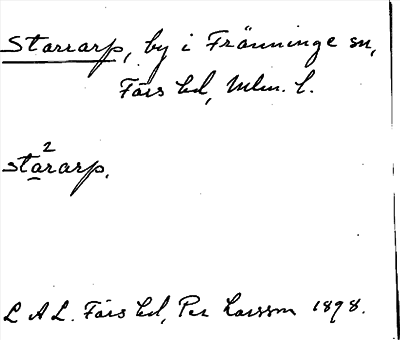 Starrarp, by i Fränninge sn,
Färs hd, Mlm. l.
2
stararp.
L A L. Färs hd, Per Larsson 1898.